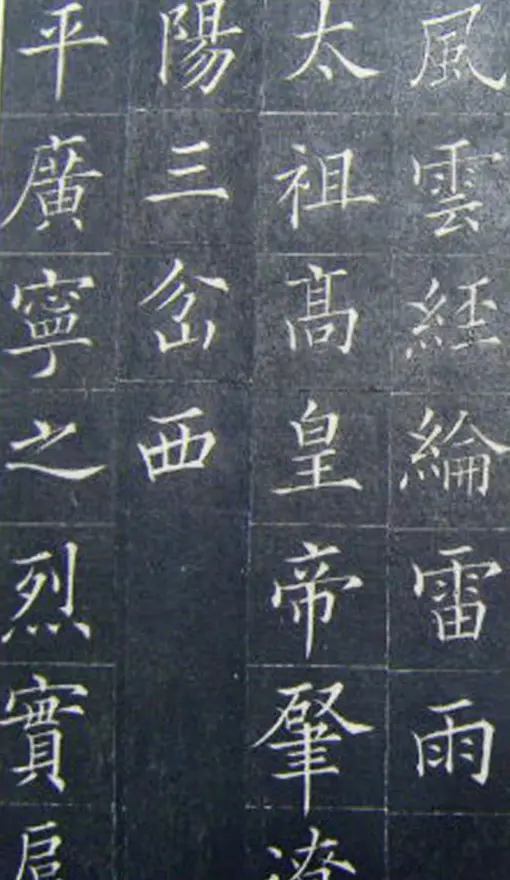 風雲經綸雷雨
太祖髙皇帝肇遼
陽三岔西
平廣寧之烈實